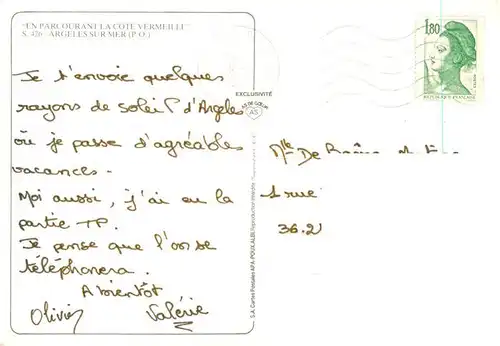 "EN PARCOURANT LA COTE VERMEILLE"
S. 426 ARGELES SUR MER (P.O.)
Je t'envoie quelques
rayons de soleil d'Argeles
où je passe d'agréables
vacances.
Moi aussi, j'ai eu la
partie TP.
Je pense que l'on se
téléphonera.
A bientôt
Olivier Valérie
EXCLUSIVITÉ
AS DE CŒUR
AS
S.A. Cartes Postales APA-POUX ALBI Reproduction interdite
1,80
REPUBLIQUE FRANÇAISE
Mlle De
1 rue
36.2